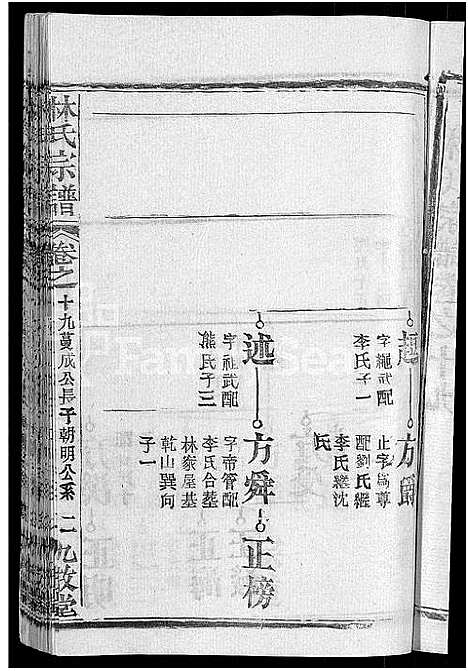 字繩武配
李氏子一
方爵
止字爲尊
配劉氏繼
李氏繼沈
氏
述
字祖武配
熊氏子三
方舜
字帝管配
李氏合墓
林家屋基
乾山巽向
子一
正榜
林氏宗譜
卷之
十九萬成公長子朝明公系
二
九牧堂